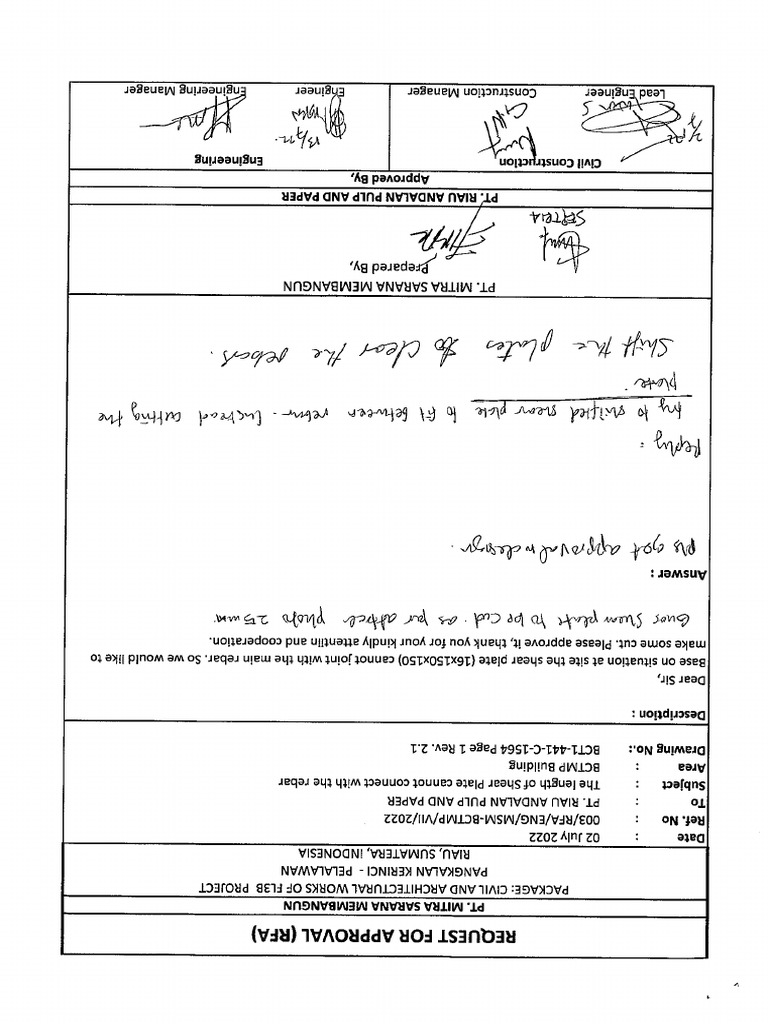 REQUEST FOR APPROVAL (RFA)
PT. MITRA SARANA MEMBANGUN
PACKAGE: CIVIL AND ARCHITECTURAL WORKS OF FL3B PROJECT
PANGKALAN KERINCI - PELALAWAN
RIAU, SUMATERA, INDONESIA
Date : 02 July 2022
Ref. No : 003/RFA/ENG/MSM-BCTMP/VII/2022
To : PT. RIAU ANDALAN PULP AND PAPER
Subject : The length of Shear Plate cannot connect with the rebar
Area : BCTMP Building
Drawing No.: BCT1-441-C-1564 Page 1 Rev. 2.1
Description :
Dear Sir,
Base on situation at site the shear plate (16x150x150) cannot joint with the main rebar. So we would like to
make some cut. Please approve it, thank you for your kindly attentiin and cooperation.
shear plate to be cut. as per attach photo 25 mm
Answer :
pls get approval design.
Reply :
try to shifted shear plate to fit between rebar. Instead cutting the
plate.
Shift the plates to clear the rebars.
PT. MITRA SARANA MEMBANGUN
Prepared By,
SEPTRIA
PT. RIAU ANDALAN PULP AND PAPER
Approved By,
Civil Construction Engineering
Lead Engineer Construction Manager Engineer Engineering Manager